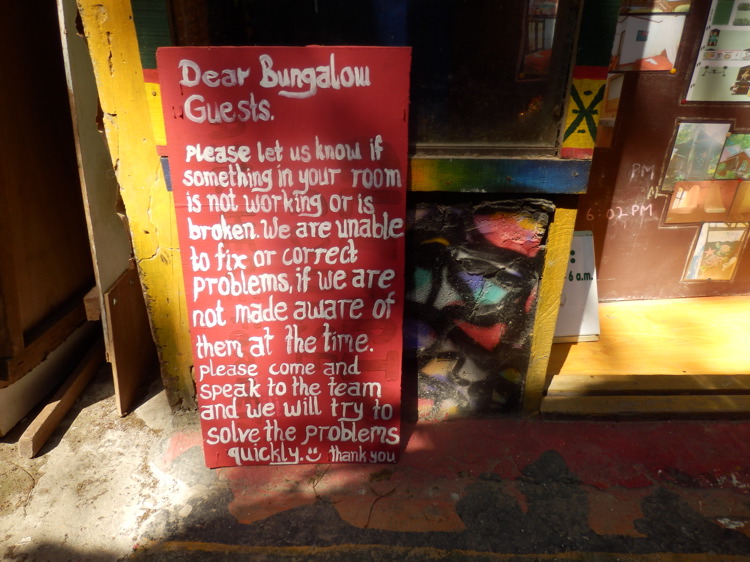 Dear Bungalow
Guests.
please let us know if
something in your room
is not working or is
broken. We are unable
to fix or correct
problems, if we are
not made aware of
them at the time.
please come and
speak to the team
and we will try to
solve the problems
quickly. thank you
PM
6:02 PM
6 a.m.